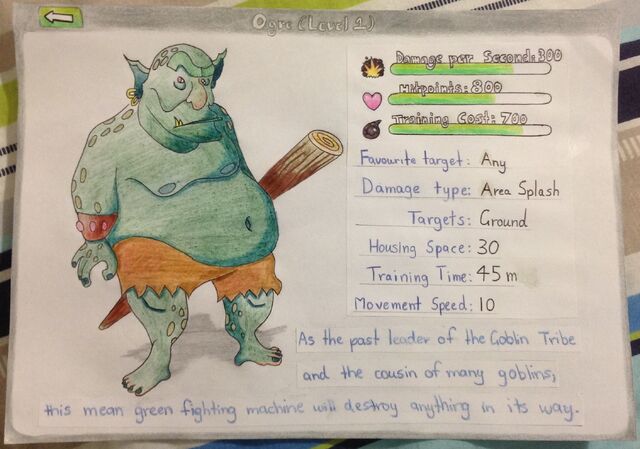 Ogre (Level 1)
Damage per Second: 300
Hitpoints: 800
Training Cost: 700
Favourite target: Any
Damage type: Area Splash
Targets: Ground
Housing Space: 30
Training Time: 45m
Movement Speed: 10
As the past leader of the Goblin Tribe
and the cousin of many goblins,
this mean green fighting machine will destroy anything in its way.